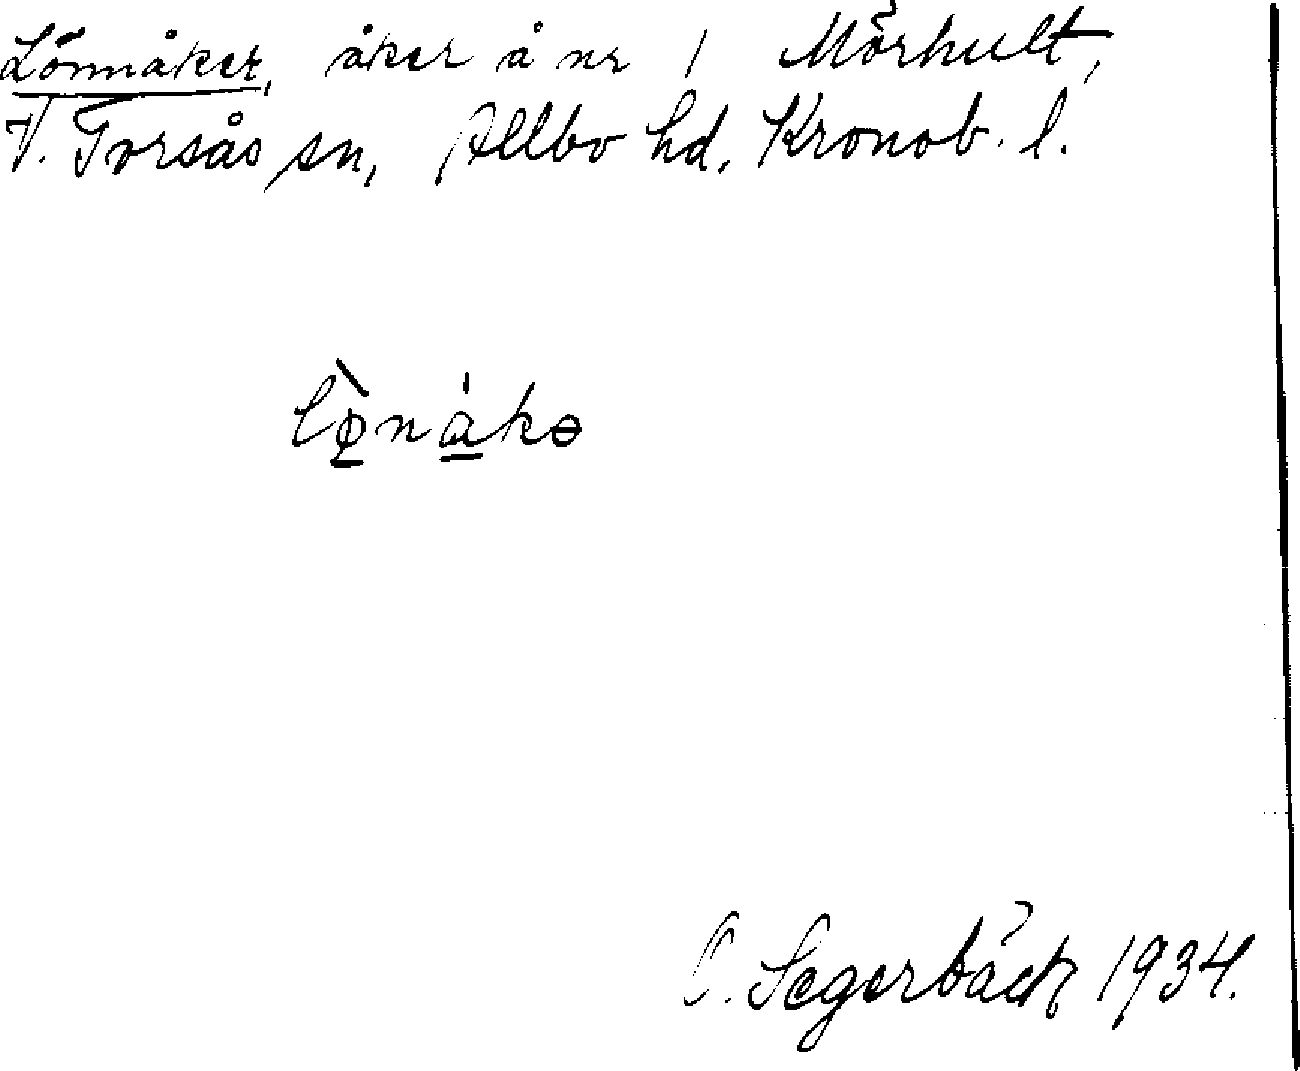 Lönnåker, åker å nr 1 Mörhult,
V. Torsås sn, Allbo hd, Kronob. l.
lø̱̀na̱̍kə
O. Segerbäck 1934.